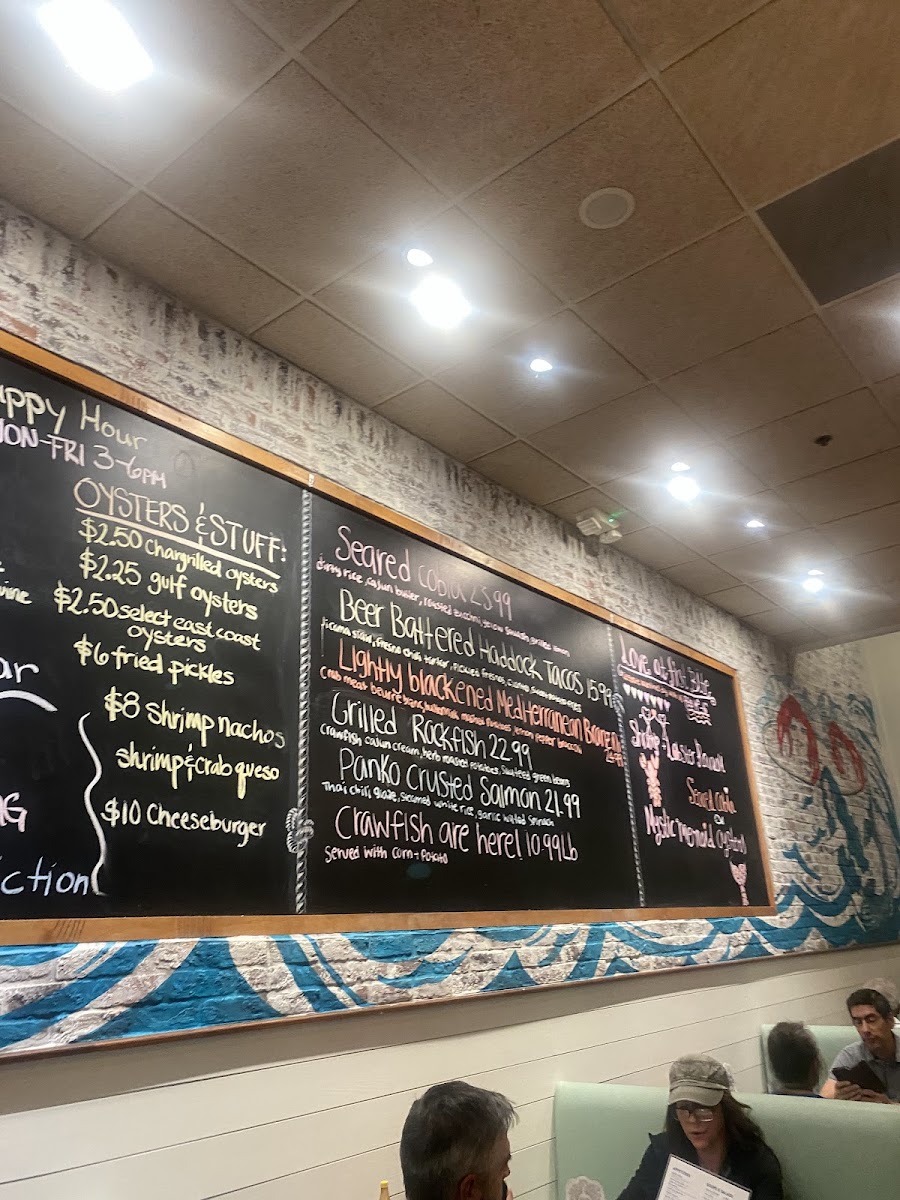 Happy Hour
MON-FRI 3-6PM
OYSTERS & STUFF:
$2.50 Chargrilled oysters
$2.25 gulf oysters
$2.50 select east coast
oysters
$6 fried pickles
$8 Shrimp nachos
shrimp & crab queso
$10 Cheeseburger
ction
Seared Cobia 25.99
dirty rice, cajun butter, roasted zucchini, yellow squash, grilled lemon
Beer Battered Haddock Tacos 15.99
jicama slaw, fresno chili tartar, pickled fresnos, cilantro, sweet potato fries
Lightly blackened Mediterranean Bronzino
Crab meat beurre blanc, buttermilk mashed potatoes, lemon pepper broccoli
Grilled Rockfish 22.99
Crawfish cajun cream, herb roasted potatoes, sauteed green beans
Panko Crusted Salmon 21.99
Thai chili glaze, steamed white rice, garlic wilted spinach
Crawfish are here! 10.99 Lb
Served with corn + potato
Love at first Bite
Seared Cobia
or
Mystic mermaid oysters